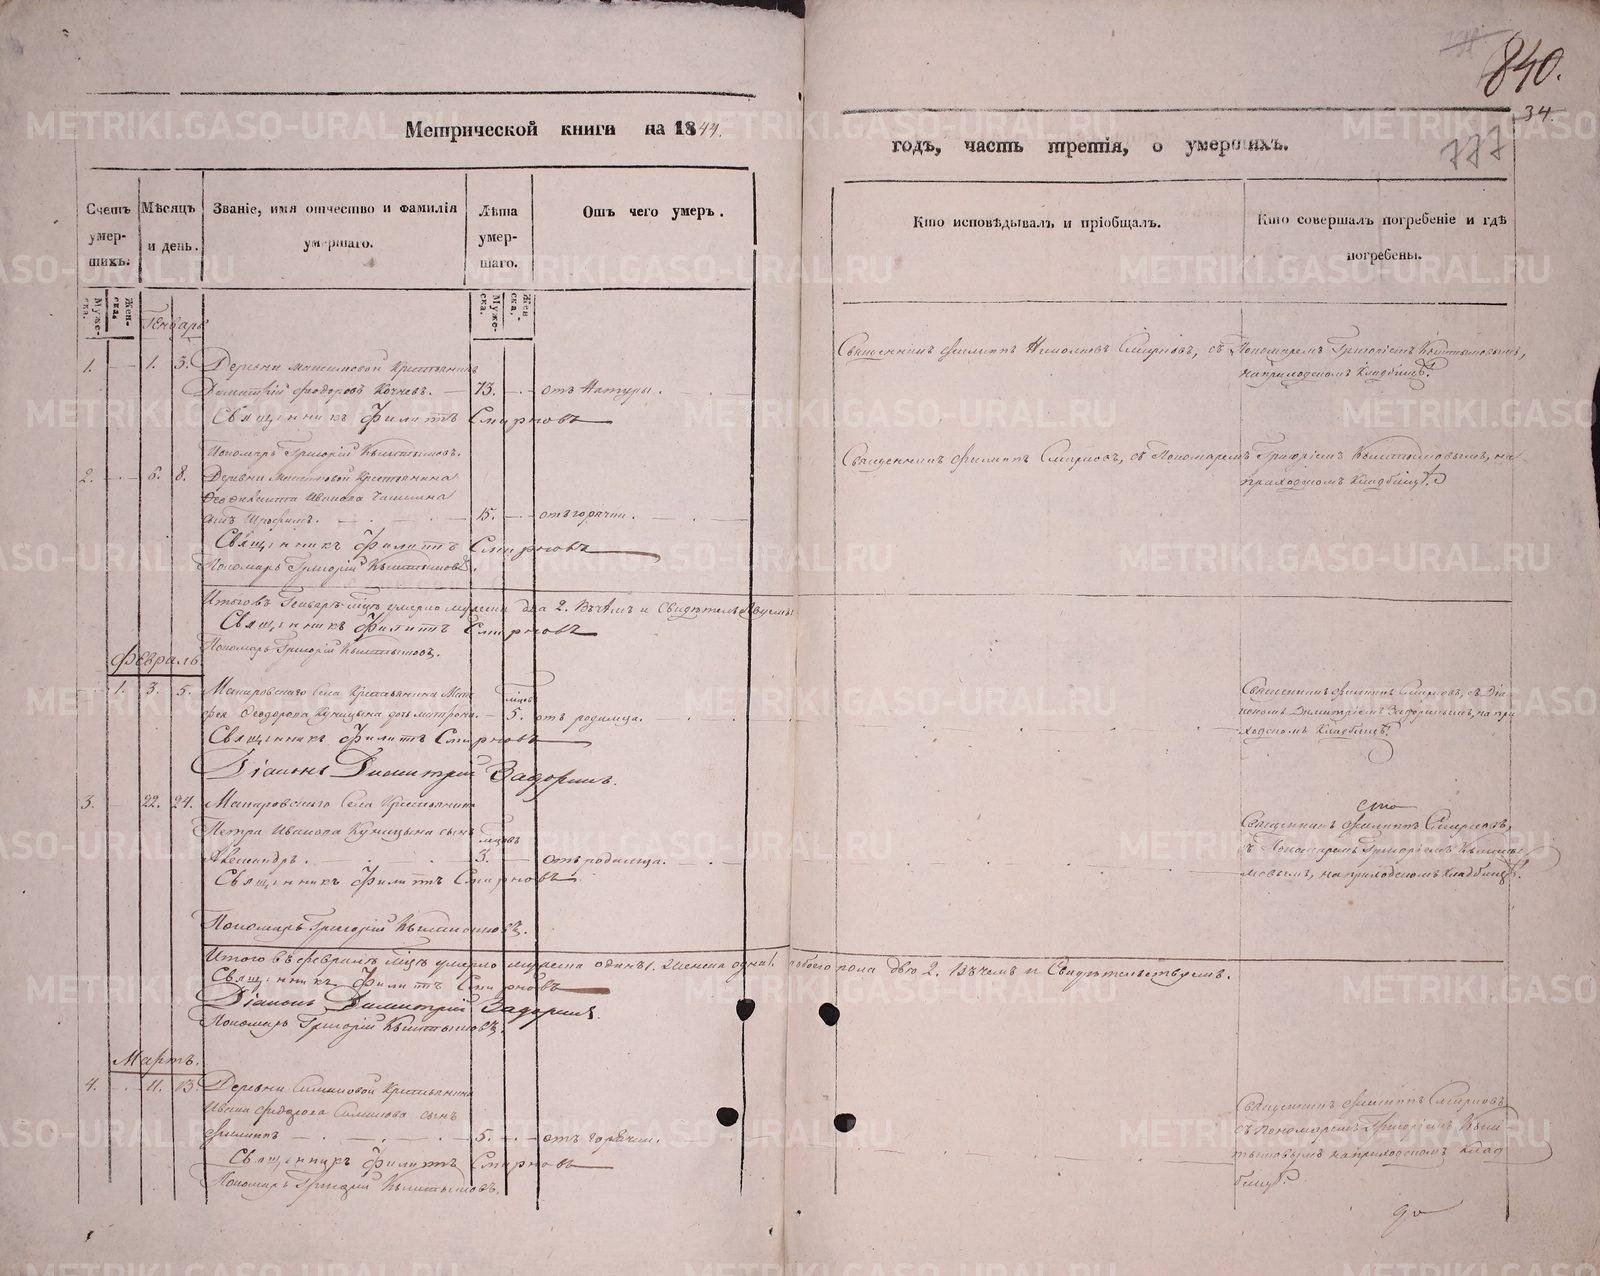 840.
34.
777
Метрической книги на 1844.
годъ, часть третія, о умершихъ.
Счетъ умер-шихъ.
Мѣсяцъ и день.
Званіе, имя отчество и фамилія умершаго.
Лѣта умер-шаго.
Отъ чего умеръ.
Кто исповѣдывалъ и пріобщалъ.
Кто совершалъ погребеніе и гдѣ погребены.
Муже-ска.
Жен-ска.
Муже-ска.
Жен-ска.
Генварь
1. 1. 3. Деревни Крестьянинъ
Димитрій Феодоровъ Кочневъ. 73. отъ Натуры.
Священникъ Филиппъ Смирновъ
Пономарь Григорій Кыштымовъ.
Священникъ Филиппъ Смирновъ, съ Пономаремъ Григоріемъ Кыштымовымъ,
на приходскомъ Кладбищѣ.
2. 6. 8. Деревни Крестьянина
Ивана
сынъ 15. отъ горячки.
Священникъ Филиппъ Смирновъ
Пономарь Григорій Кыштымовъ.
Священникъ Филиппъ Смирновъ, съ Пономаремъ Григоріемъ Кыштымовымъ, на
приходскомъ Кладбищѣ.
Итого въ Генварѣ мцѣ умерло мужеска два 2. Въ чемъ и Свидѣтельствуемъ
Священникъ Филиппъ Смирновъ
Пономарь Григорій Кыштымовъ.
Февраль.
1. 3. 5. Маминровскаго Села Крестьянина
Феодорова Куницына дочь Матрона. мцовъ 5. отъ родимца.
Священникъ Филиппъ Смирновъ
Діаконъ Димитрій Задоринъ.
Священникъ Филиппъ Смирновъ, съ Діа-
кономъ Димитріемъ Задоринымъ, на при-
ходскомъ Кладбищѣ.
3. 22. 24. Села Крестьянина
Петра Иванова Куницына сынъ мцовъ
Александръ. 3. отъ родимца.
Священникъ Филиппъ Смирновъ
Пономарь Григорій Кыштымовъ.
Священникъ Филиппъ Смирновъ,
съ Пономаремъ Григоріемъ Кышты-
мовымъ, на приходскомъ Кладбищѣ.
Итого въ Февралѣ мцѣ умерло мужеска одинъ 1. женска одна 1. обоего пола двое 2. Въ чемъ и Свидѣтельствуемъ.
Священникъ Филиппъ Смирновъ
Діаконъ Димитрій Задоринъ.
Пономарь Григорій Кыштымовъ.
Мартъ.
4. 11. 13. Деревни Крестьянина
Ивана Федорова сынъ
Филиппъ 5. отъ горячки.
Священникъ Филиппъ Смирновъ
Пономарь Григорій Кыштымовъ.
Священникъ Филиппъ Смирновъ
съ Пономаремъ Григоріемъ Кыш-
тымовымъ на приходскомъ Клад-
бищѣ.
METRIKI.GASO-URAL.RU